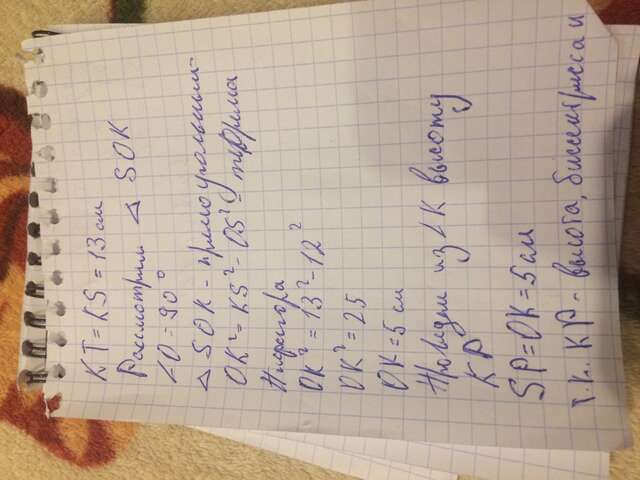 KT = KS = 13 см
Рассмотрим △ SOK
∠O = 90°
△ SOK - прямоугольный
OK² = KS² - OS² - теорема
Пифагора
OK² = 13² - 12²
OK² = 25
OK = 5 см
Проведем из ∠K высоту
KP
SP = OK = 5 см
т.к. KP - высота, биссектриса и